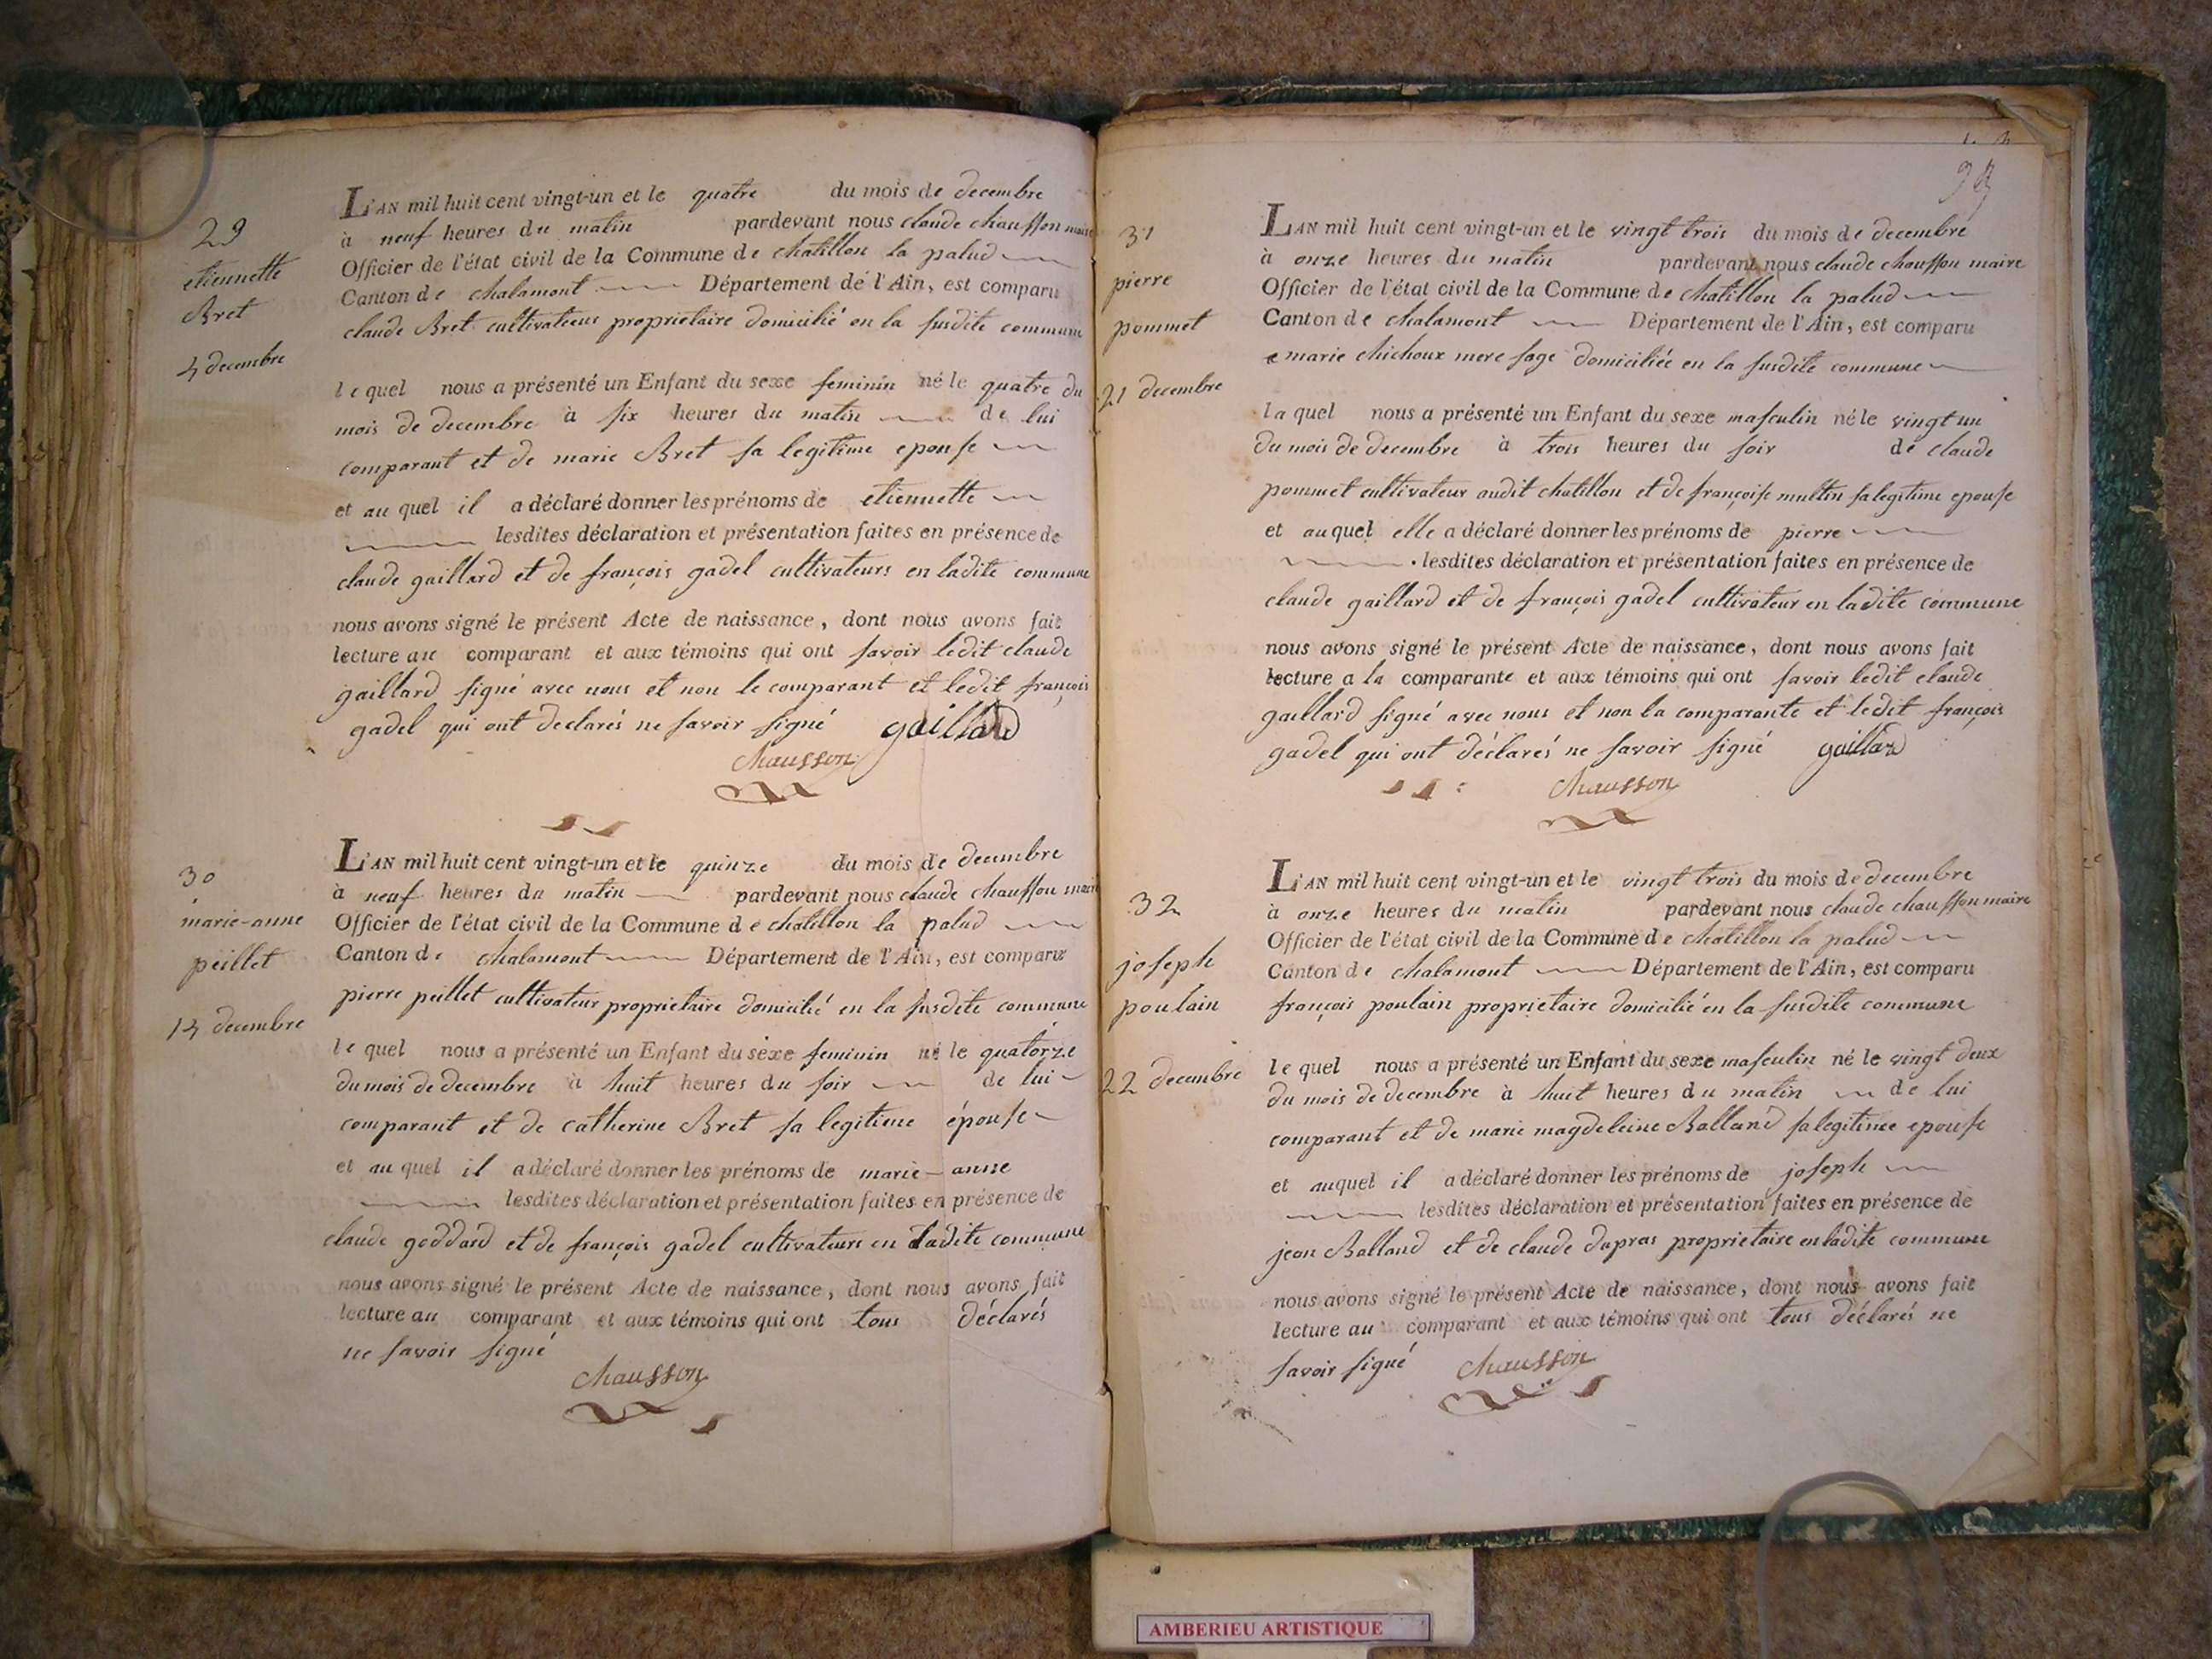 29
etiennette
Bret
4 decembre
L'AN mil huit cent vingt-un et le quatre du mois de decembre
à neuf heures du matin pardevant nous claude chausson maire
Officier de l'état civil de la Commune de chatillon la palud
Canton de chalamont Département de l'Ain, est comparu
claude Bret cultivateur proprietaire domicilié en la susdite commune
lequel nous a présenté un Enfant du sexe feminin né le quatre du
mois de decembre à six heures du matin de lui
comparant et de marie Bret sa legitime epouse
et au quel il a déclaré donner les prénoms de etiennette
lesdites déclaration et présentation faites en présence de
claude gaillard et de françois gadel cultivateurs en ladite commune
nous avons signé le présent Acte de naissance, dont nous avons fait
lecture au comparant et aux témoins qui ont savoir ledit claude
gaillard signé avec nous et non le comparant et ledit françois
gadel qui ont declarés ne savoir signé gaillard
Chausson
30
marie-anne
peillet
14 decembre
L'AN mil huit cent vingt-un et le quinze du mois de decembre
à neuf heures du matin pardevant nous claude chausson maire
Officier de l'état civil de la Commune de chatillon la palud
Canton de chalamont Département de l'Ain, est comparu
pierre peillet cultivateur proprietaire domicilié en la susdite commune
lequel nous a présenté un Enfant du sexe feminin né le quatorze
du mois de decembre à huit heures du soir de lui
comparant et de catherine Bret sa legitime épouse
et au quel il a déclaré donner les prénoms de marie-anne
lesdites déclaration et présentation faites en présence de
claude goddard et de françois gadel cultivateurs en ladite commune
nous avons signé le présent Acte de naissance, dont nous avons fait
lecture au comparant et aux témoins qui ont tous déclarés
ne savoir signé
Chausson
31
pierre
pommet
21 decembre
L'AN mil huit cent vingt-un et le vingt trois du mois de decembre
à onze heures du matin pardevant nous claude chausson maire
Officier de l'état civil de la Commune de chatillon la palud
Canton de chalamont Département de l'Ain, est comparu
marie chichoux mere sage domiciliée en la susdite commune
laquel nous a présenté un Enfant du sexe masculin né le vingt un
du mois de decembre à trois heures du soir de claude
pommet cultivateur audit chatillon et de françoise multin sa legitime epouse
et auquel elle a déclaré donner les prénoms de pierre
lesdites déclaration et présentation faites en présence de
claude gaillard et de françois gadel cultivateur en ladite commune
nous avons signé le présent Acte de naissance, dont nous avons fait
lecture a la comparante et aux témoins qui ont savoir ledit claude
gaillard signé avec nous et non la comparante et ledit françois
gadel qui ont déclarés ne savoir signé gaillard
Chausson
32
joseph
poulain
22 decembre
L'AN mil huit cent vingt-un et le vingt trois du mois de decembre
à onze heures du matin pardevant nous claude chausson maire
Officier de l'état civil de la Commune de chatillon la palud
Canton de chalamont Département de l'Ain, est comparu
françois poulain proprietaire domicilié en la susdite commune
lequel nous a présenté un Enfant du sexe masculin né le vingt deux
du mois de decembre à huit heures du matin de lui
comparant et de marie magdeleine Balland sa legitime epouse
et auquel il a déclaré donner les prénoms de joseph
lesdites déclaration et présentation faites en présence de
jean Balland et de claude dupras proprietaire en ladite commune
nous avons signé le présent Acte de naissance, dont nous avons fait
lecture au comparant et aux témoins qui ont tous déclarés ne
savoir signé Chausson
AMBERIEU ARTISTIQUE